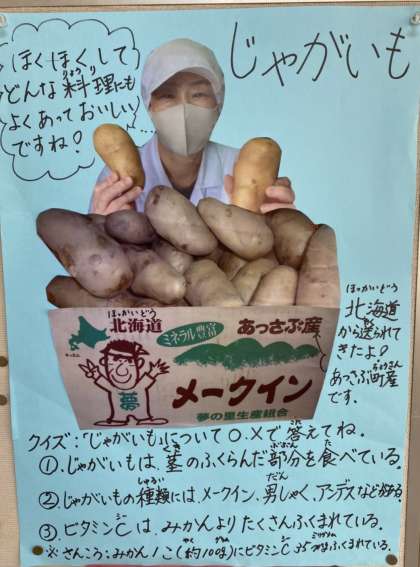 じゃがいも
ほくほくして
どんな料理にも
りょうり
よくあっておいしい
ですね!
ほっかいどう
北海道
から送られて
きたよ♪
あっさぶ町産
ちょうさん
です。
ほっかいどう
北海道
ミネラル豊富
あっさぶ産
夢
メークイン
夢の里生産組合
クイズ:「じゃがいも」について○.×で答えてね。
①.じゃがいもは、茎のふくらんだ部分を食べている。
くき
ぶぶん
た
②.じゃがいもの種類には、メークイン、男しゃく、アンデスなどがある。
しゅるい
だん
③.ビタミンCは、みかんよりたくさんふくまれている。
シー
※さんこう:みかん1こ(約100g)にビタミンC 35mgふくまれている。
やく
ミリグラム